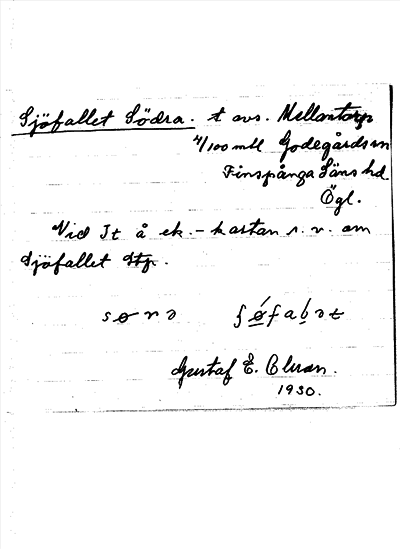 Sjöfallet Södra. t avs. Mellantorp
4/100 mtl Godegårds sn
Finspånga Läns hd
Ögl.
Vid It å ek.-kartan s. v. om
Sjöfallet Stp.
Gustaf E. Olsson.
1930.